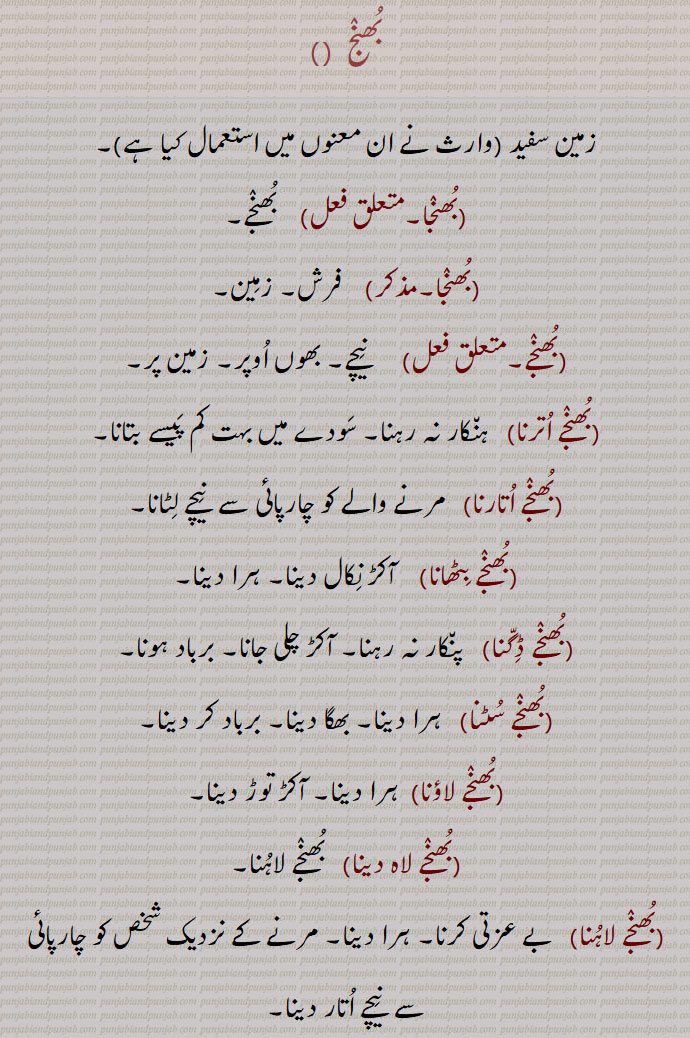 بُھنْج ()
زمین سفید (وارث نے ان معنوں میں استعمال کیا ہے)۔
(بُھنْجا۔متعلق فعل) بُھنْجے۔
(بُھنْجا۔مذکر) فرش۔ زمِین۔
(بُھنْجے۔متعلق فعل) نِیچے۔ بھوں اُوپر۔ زمین پر۔
(بُھنْجے اُترنا) ہنّکار نہ رہنا۔ سَودے میں بہت کم پَیسے بتانا۔
(بُھنْجے اُتارنا) مرنے والے کو چارپائی سے نِیچے لِٹانا۔
(بُھنْجے بِٹھانا) آکڑ نِکال دینا۔ ہرا دینا۔
(بُھنْجے ڈِگّنا) ہنّکار نہ رہنا۔ آکڑ چلی جانا۔ برباد ہونا۔
(بُھنْجے سُٹنا) ہرا دینا۔ بھگا دینا۔ برباد کر دینا۔
(بُھنْجے لاؤنا) ہرا دینا۔ آکڑ توڑ دینا۔
(بُھنْجے لاہ دینا) بُھنْجے لاہُنا۔
(بُھنْجے لاہُنا) بے عزتی کرنا۔ ہرا دینا۔ مرنے کے نزدیک شخص کو چارپائی
سے نِیچے اُتار دینا۔